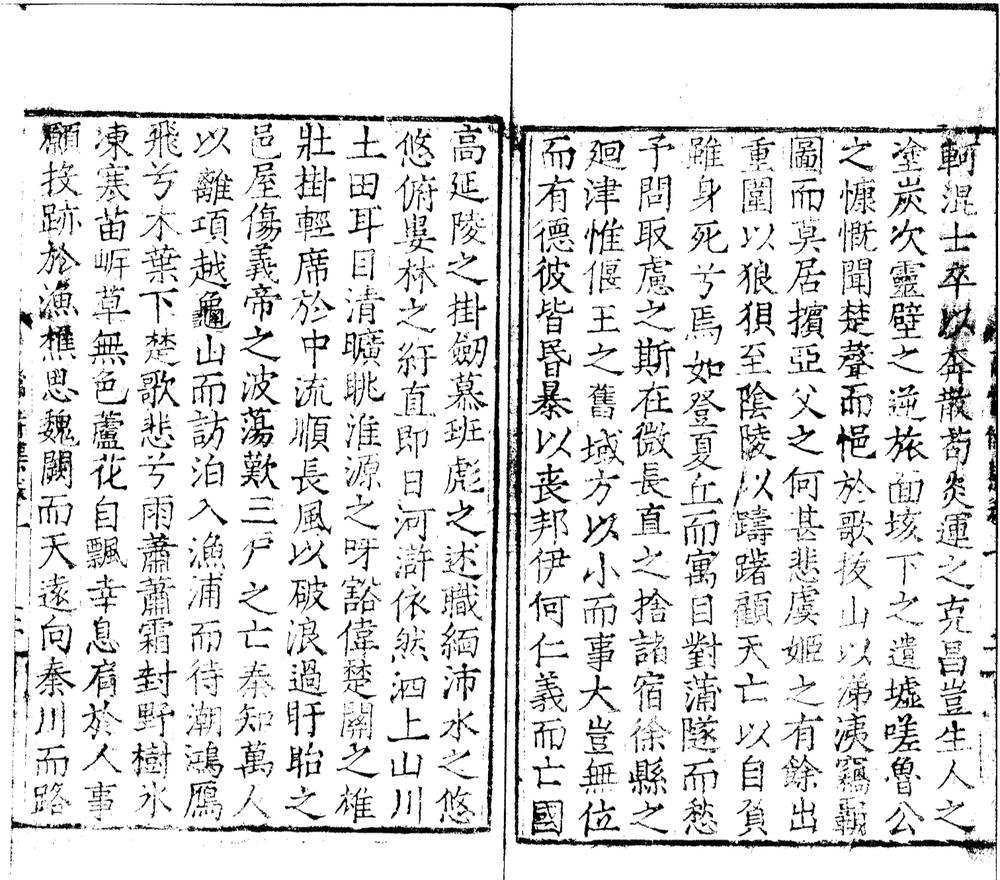 軻混士卒以奔散苟炎運之克昌豈生人之
塗炭次靈壁之逆旅面垓下之遺墟嗟魯公
之慷慨聞楚聲而悒於歌拔山以涕洟竊霸
圖而莫居擯亞父之何甚悲虞姬之有餘出
重圍以狼狽至陰陵以躊躇顧天亡以自負
雖身死兮焉如登夏丘而寓目對蒲隧而愁
予問取慮之斯在微長直之捨諸宿徐縣之
廻津惟偃王之舊域方以小而事大豈無位
而有德彼皆昏暴以丧邦伊何仁義而亡國
高延陵之掛劒慕班彪之述職緬沛水之悠
悠俯婁林之紆直即日河滸依然泗上山川
土田耳目清曠眺淮源之呀豁偉楚關之雄
壯掛輕席於中流順長風以破浪過盱眙之
邑屋傷義帝之波蕩歎三戶之亡秦知萬人
以離項越龜山而訪泊入漁浦而待潮鴻鴈
飛兮木葉下楚歌悲兮雨蕭蕭霜封野樹氷
凍寒苗岍草無色蘆花自飄幸息肩於人事
願投跡於漁樵思魏闕而天遠向秦川而路